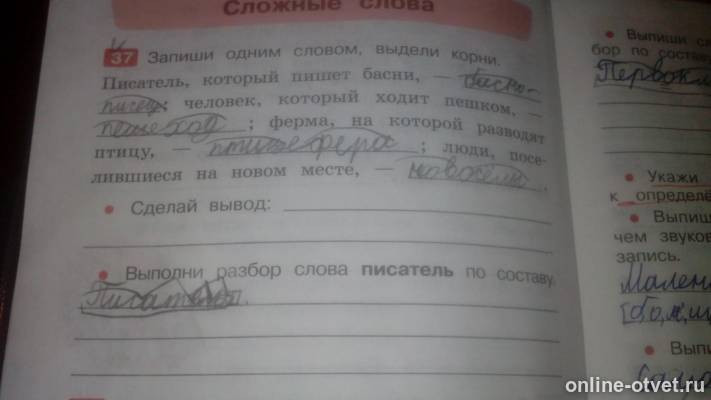 Сложные слова
37 Запиши одним словом, выдели корни.
Писатель, который пишет басни, — басно-
писец; человек, который ходит пешком, —
пешеход; ферма, на которой разводят
птицу, — птицеферма; люди, посе-
лившиеся на новом месте, — новосёлы.
• Сделай вывод:
• Выполни разбор слова писатель по составу.
Писатель.
• Выпиши
бор по состав
• Укажи
к определё
• Выпиш
чем звуков
запись.
Мален
• Выпи
online-otvet.ru